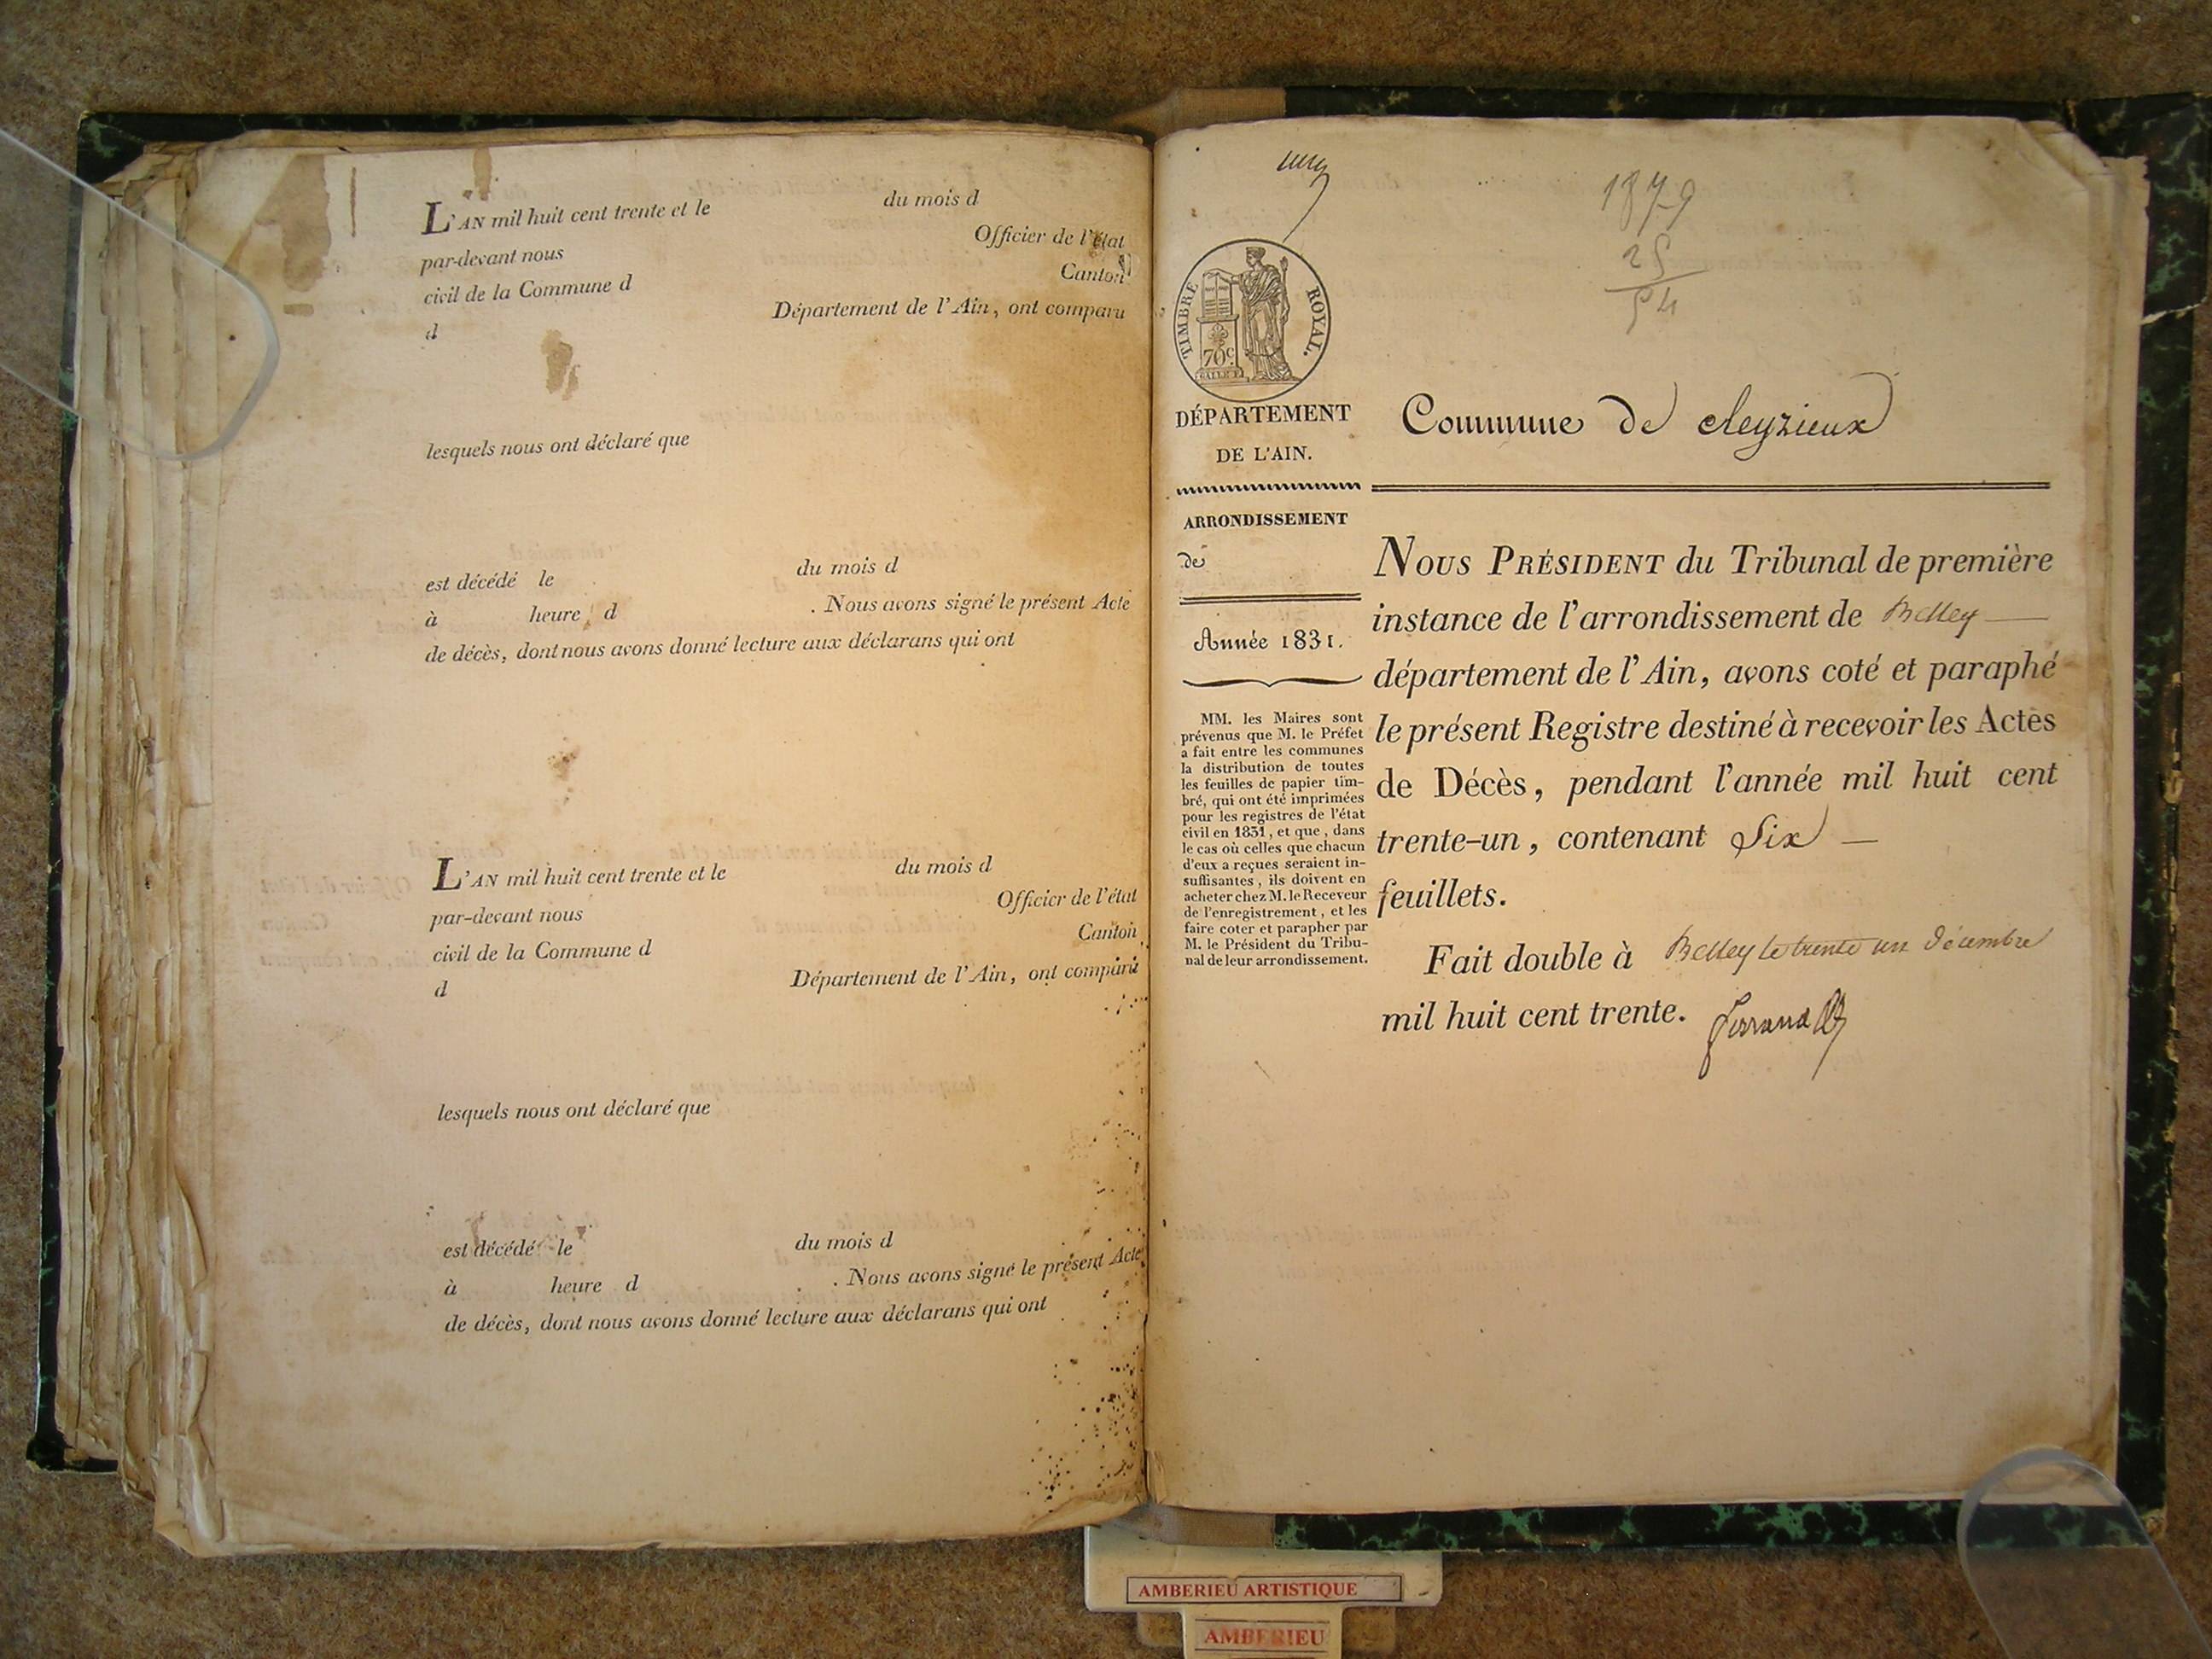 L'AN mil huit cent trente et le du mois d
par-devant nous Officier de l'état
civil de la Commune d Canton
d Département de l'Ain, ont comparu
lesquels nous ont déclaré que
est décédé le du mois d
à heure d . Nous avons signé le présent Acte
de décès, dont nous avons donné lecture aux déclarans qui ont
L'AN mil huit cent trente et le du mois d
par-devant nous Officier de l'état
civil de la Commune d Canton
d Département de l'Ain, ont comparu
lesquels nous ont déclaré que
est décédé le du mois d
à heure d . Nous avons signé le présent Acte
de décès, dont nous avons donné lecture aux déclarans qui ont
1879
25
54
TIMBRE ROYAL.
70c
DÉPARTEMENT
DE L'AIN.
ARRONDISSEMENT
de
Année 1831.
MM. les Maires sont
prévenus que M. le Préfet
a fait entre les communes
la distribution de toutes
les feuilles de papier tim-
bré, qui ont été imprimées
pour les registres de l'état
civil en 1831, et que, dans
le cas où celles que chacun
d'eux a reçues seraient in-
suffisantes, ils doivent en
acheter chez M. le Receveur
de l'enregistrement, et les
faire coter et parapher par
M. le Président du Tribu-
nal de leur arrondissement.
Commune de cleyzieux
NOUS PRÉSIDENT du Tribunal de première
instance de l'arrondissement de Belley
département de l'Ain, avons coté et paraphé
le présent Registre destiné à recevoir les Actes
de Décès, pendant l'année mil huit cent
trente-un, contenant Six
feuillets.
Fait double à Belley le trente un décembre
mil huit cent trente.
AMBERIEU ARTISTIQUE
AMBERIEU